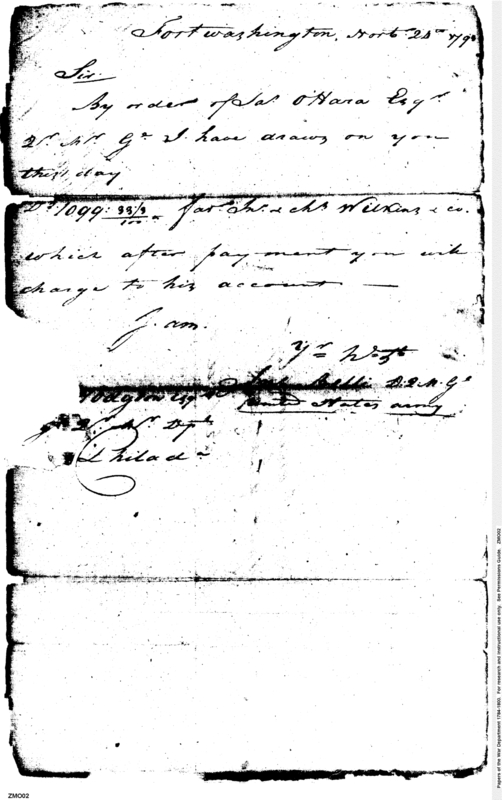 Fort washington, Novr. 24th 179
Sir
By order of Jas. O'Hara Esqr.
Qr. Mr. Gl. I have drawn on you
this day
Ds. 1099. 33/3/100 favr. Jno. & Chs. Wilkins & co.
which after payment you will
charge to his account —
I am
Yr.
Belli D.Q.M.Gl
Hodgdon Esqr. United States army
Qr. Mr. Dept.
Philada.
ZMO02
Papers of the War Department 1784-1800. For research and instructional use only. See Permissions Guide. ZMO02